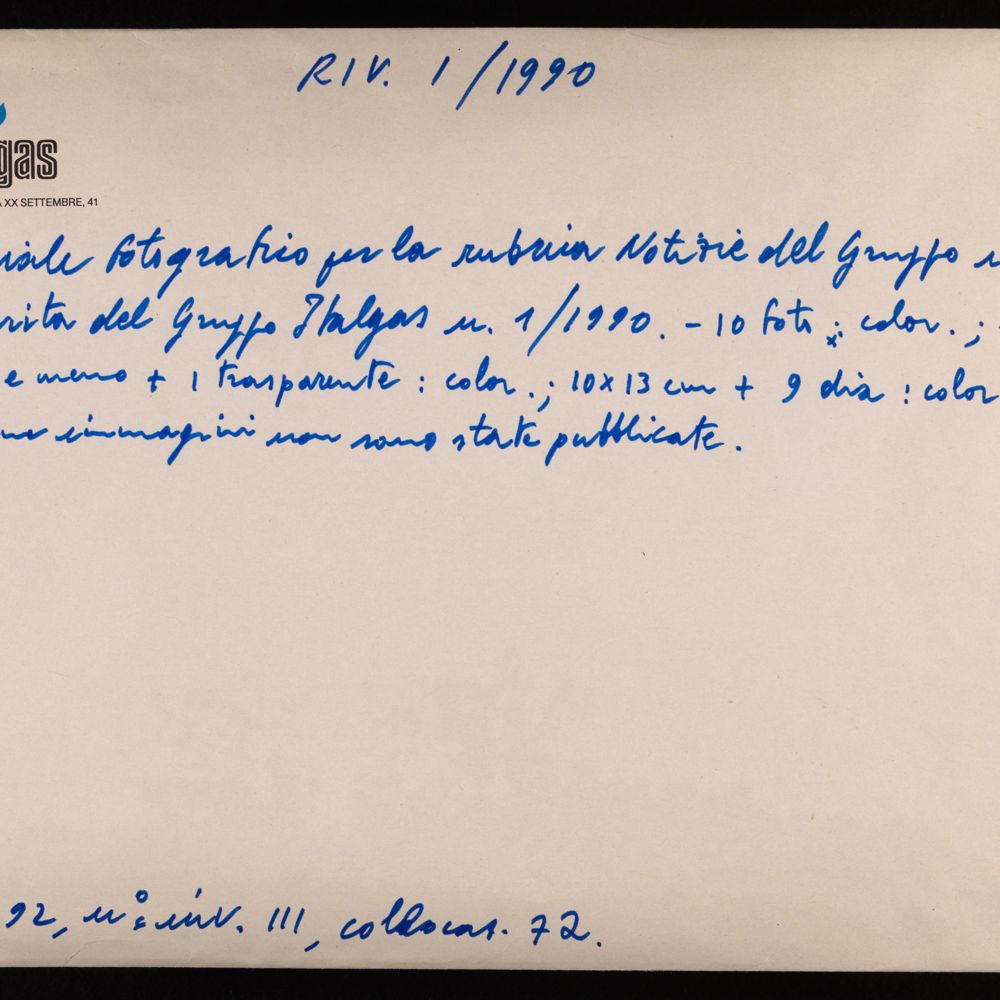 RIV. 1/1990
gas
A XX SETTEMBRE, 41
riale fotografico per la rubrica Notizie del Gruppo
rita del Gruppo Italgas n. 1/1990. - 10 foto : color. ;
e meno + 1 trasparente : color. ; 10x13 cm + 9 dia : color
immagini non sono state pubblicate.
92, n° inv. 111, collocaz. 72.